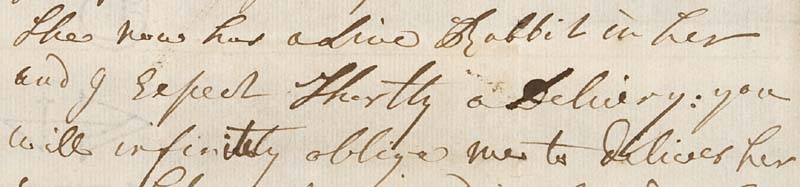 She now has a live Rabbit in her
and I Expect Shortly a Delivery: you
will infinitly oblige me to deliver her